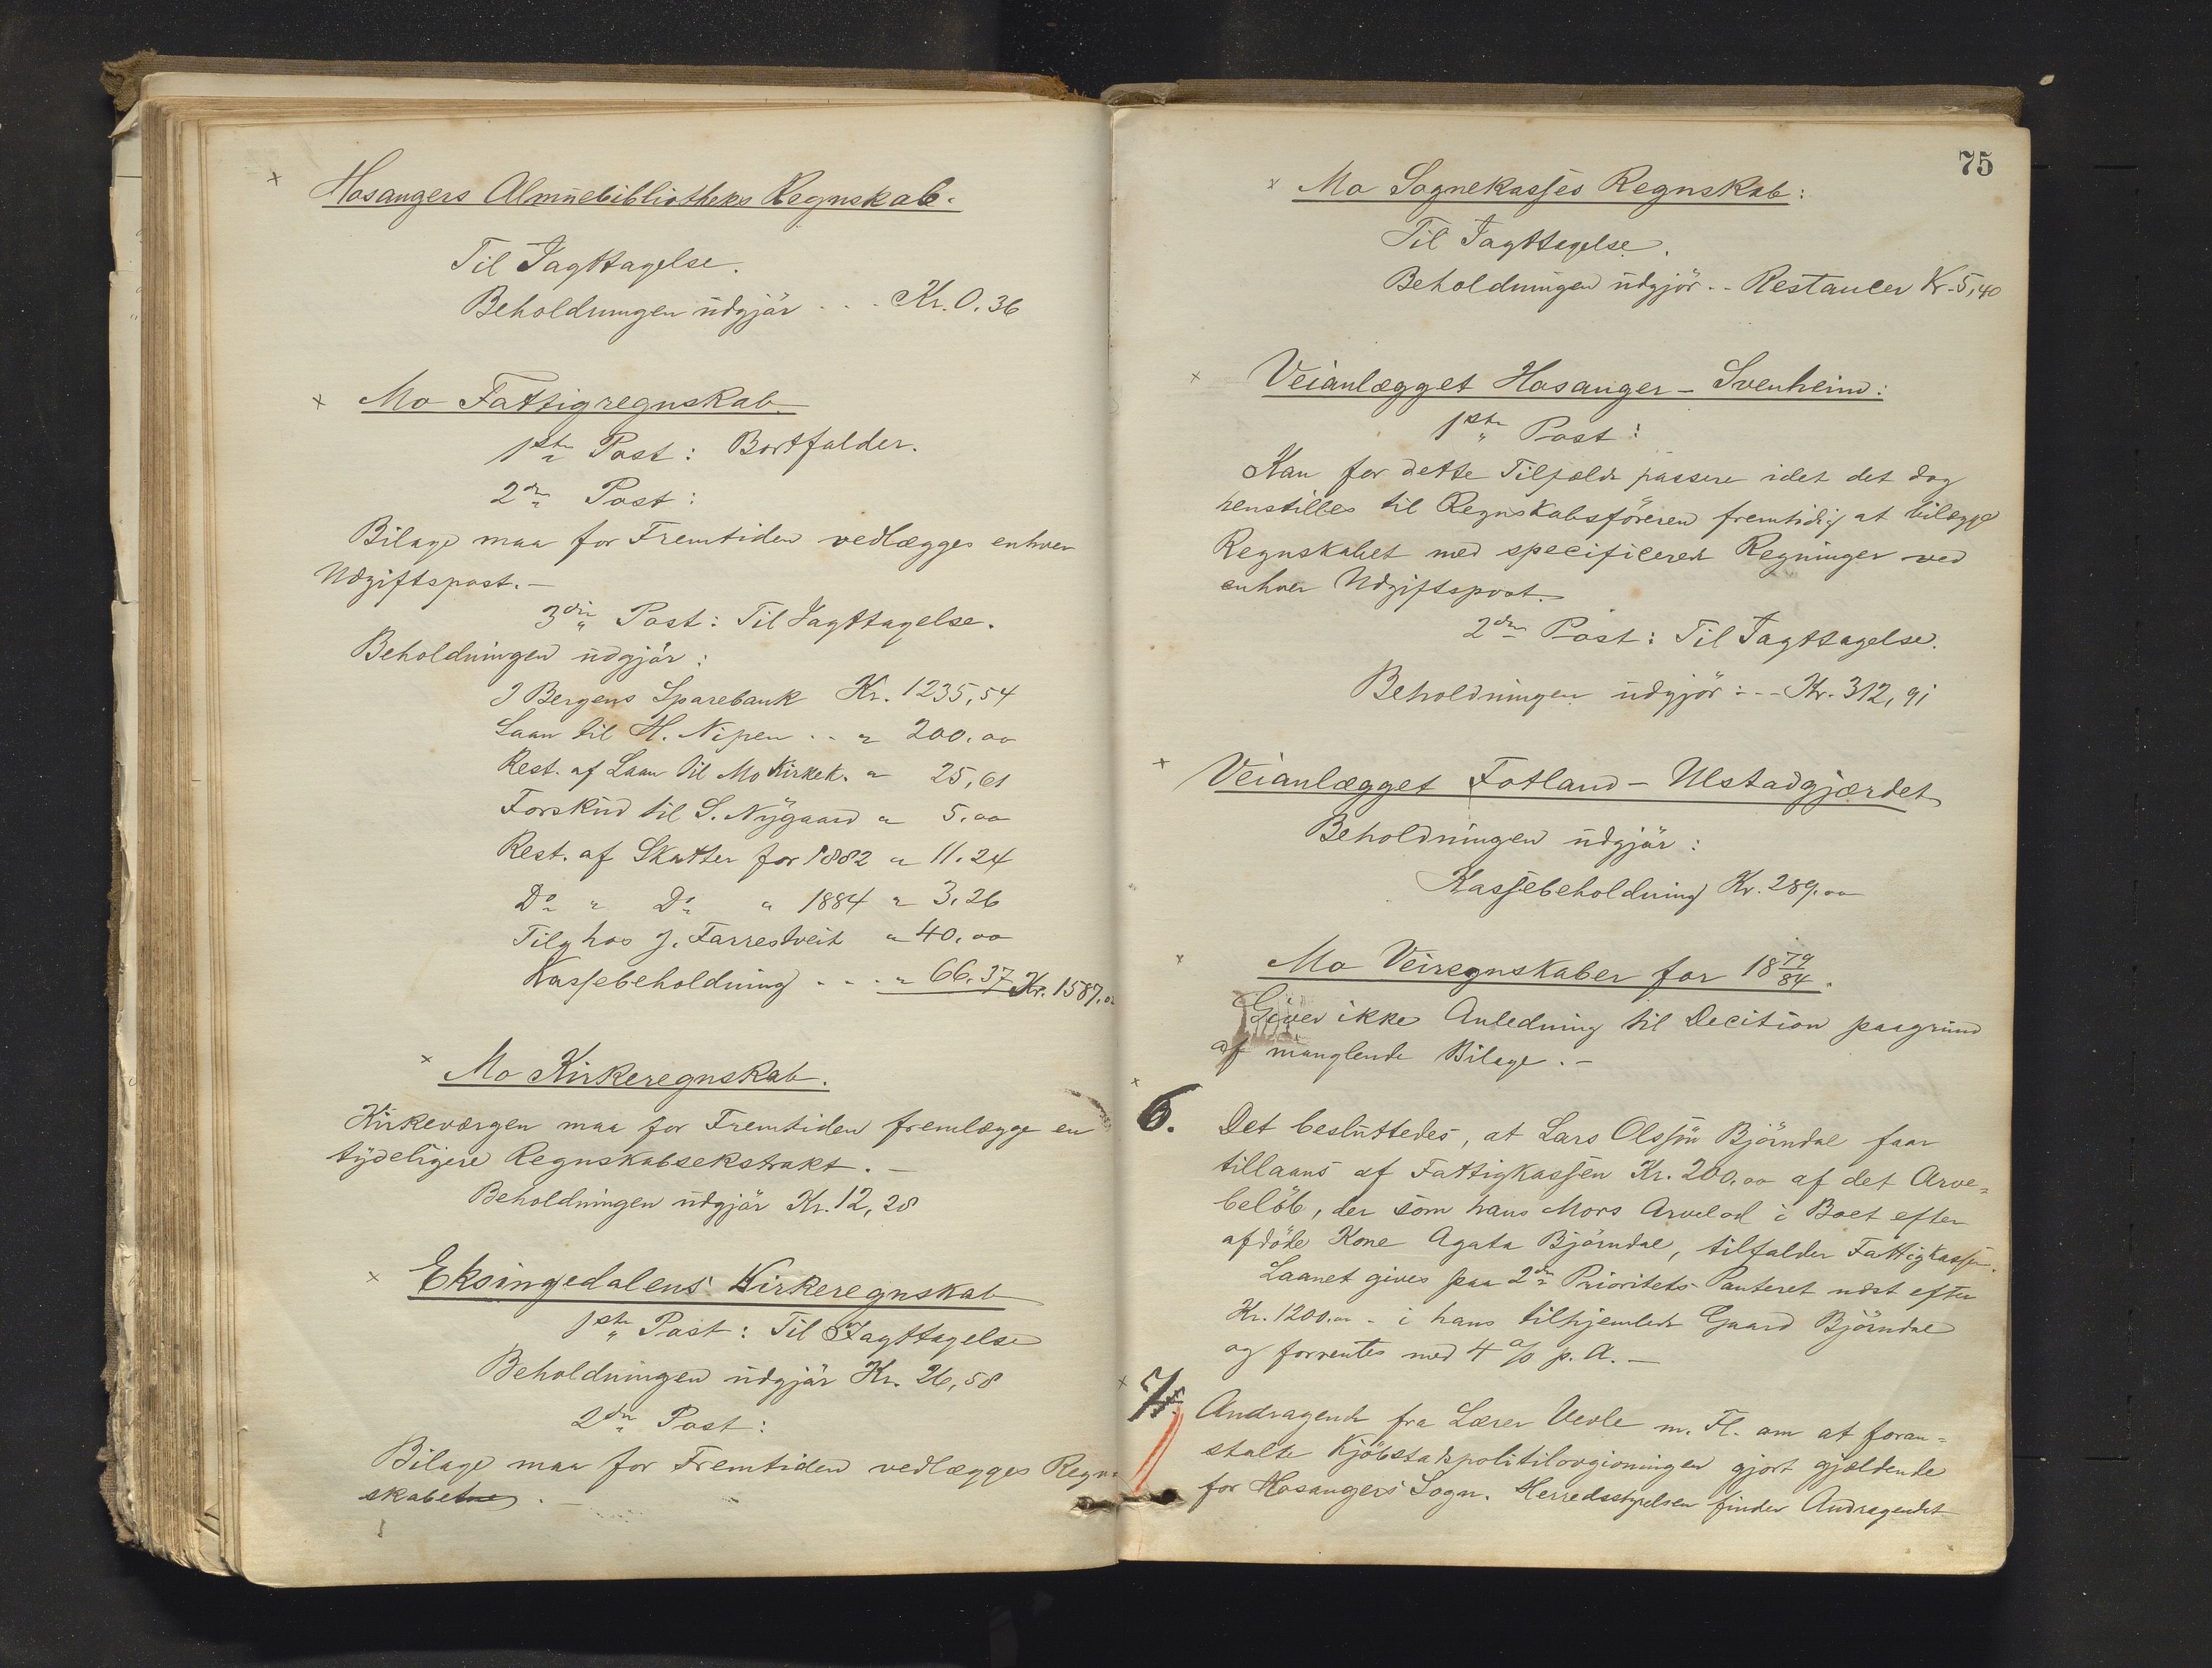 Hosangers Almuebibliotheks Regnskab.
Til Iagttagelse.
Beholdningen udgjör . . . Kr. 0,36
Mo Fattigregnskab.
1ste Post: Bortfalder.
2den Post:
Bilage maa for Fremtiden vedlægges enhver
Udgiftspost. —
3die Post: Til Iagttagelse.
Beholdningen udgjör:
I Bergens Sparebank Kr. 1235,54
Laan til H. Nipen . . " 200,00
Rest. af Laan til Mo Kirkek. " 25,61
Forskud til S. Nygaard " 5,00
Rest. af Skatter for 1882 " 11.24
Do " Do " 1884 " 3,26
Tilg hos J. Farrestveit " 40,00
Kassebeholdning . . . " 66,37 Kr. 1587,0
Mo Kirkeregnskab.
Kirkeværgen maa for Fremtiden fremlægge en
tydeligere Regnskabsekstrakt. —
Beholdningen udgjör Kr. 12,28
Eksingedalens Kirkeregnskab
1ste Post: Til Iagttagelse
Beholdningen udgjör Kr. 26,58
2den Post:
Bilage maa for Fremtiden vedlægges Regn-
skabetne. —
75
Mo Sognekasses Regnskab:
Til Iagttagelse.
Beholdningen udgjör . . Restancer Kr. 5,40
Veianlægget Hosanger – Svenheim:
1ste Post:
Kan for dette Tilfælde passere idet det dog
henstilles til Regnskabsföreren fremtidig at bilægge
Regnskabet med specificerede Regninger ved
enhver Udgiftspost.
2den Post: Til Iagttagelse.
Beholdningen udgjör: - - Kr. 312,91
Veianlægget Fotland – Ulstadgjærdet
Beholdningen udgjör:
Kassebeholdning Kr. 289.00
Mo Veiregnskaber for 18 79/84.
Giver ikke Anledning til Decition paagrund
af manglende Bilage. —
6. Det besluttedes, at Lars Olssön Björndal faar
tillaans af Fattigkassen Kr. 200,00 af det Arve-
belöb, der som hans Mors Arvelod i Boet efter
afdöde Kone Agata Björndal, tilfalder Fattigkassen.
Laanet gives paa 2den Prioritets Panteret næst efter
Kr. 1200.00 - i hans tilhjemlede Gaard Björndal
og forrentes med 4 % p. A. —
7. Andragende fra Lærer Vevle m. Fl. om at foran-
stalte Kjöbstadspolitilovgivningen gjort gjældende
for Hosangers Sogn. Herredsstyrelsen finder Andragendet